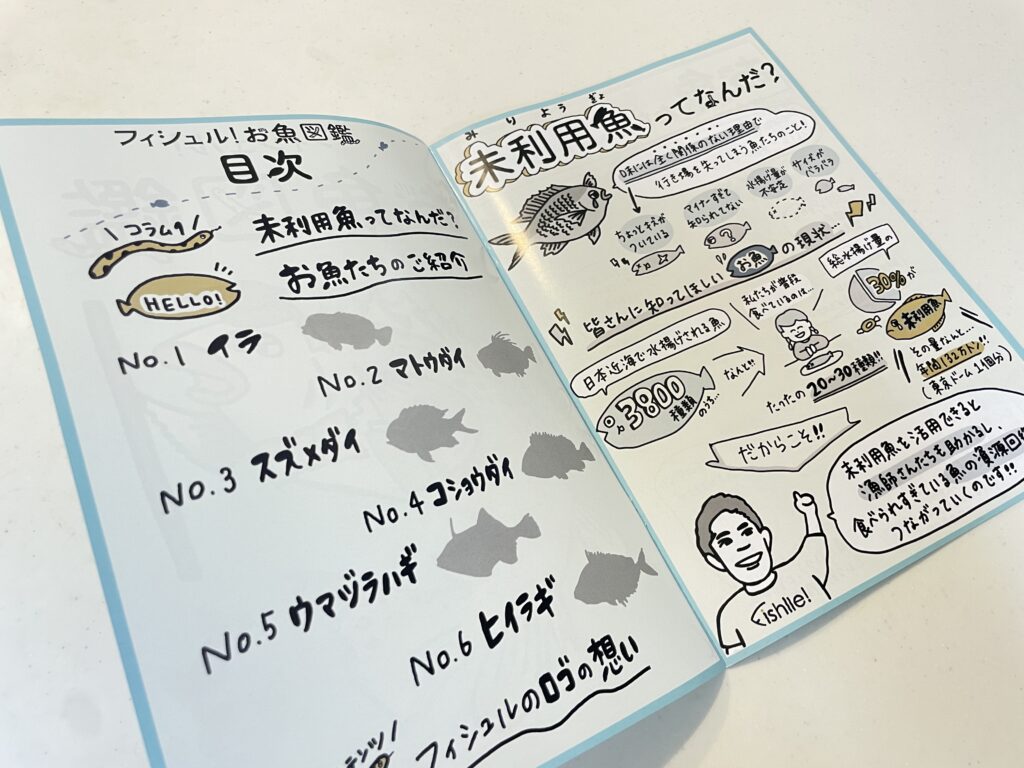 フィシュル!お魚図鑑
目次
\コラム♪/
未利用魚ってなんだ?
HELLO!
お魚たちのご紹介
No.1 イラ
No.2 マトウダイ
No.3 スズメダイ
No.4 コショウダイ
No.5 ウマヅラハギ
No.6 ヒイラギ
フィシュルのロゴの想い
みりようぎょ
未利用魚ってなんだ?
味には全く関係のない理由で
行き場を失ってしまう魚たちのこと!
ちょっとキズが
ついている
マイナーすぎて
知られてない
水揚げ量が
不安定
サイズが
バラバラ
皆さんに知ってほしいお魚の現状…
日本近海で水揚げされる魚
3800
種類
のうち…
なんと!!
私たちが普段
食べているのは…
たったの20~30種類!!
総水揚げ量の
30%が
未利用魚
その量なんと…
年間132万トン!!
(東京ドーム1個分)
だからこそ!!
未利用魚を活用できると
漁師さんたちも助かるし、
食べられすぎている魚の資源回
つながっていくのです!!
Fishlle!